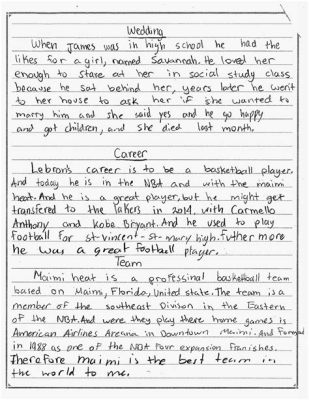 Wedding
When James was in high school he had the
likes for a girl, named Savannah. He loved her
enough to stare at her in social study class
because he sat behind her, years later he went
to her house to ask her if she wanted to
marry him and she said yes and he go happy
and got children, and she died last month.
Career
Lebron's career is to be a basketball player.
And today he is in the NBA and with the maimi
heat. And he is a great player, but he might get
transfered to the lakers in 2014, with Carmello
Anthony and Kobe Bryant. And he used to play
football for st-vincent-st-mary high. Futher more
he was a great football player.
Team
Maimi heat is a professinal basketball team
based on Maimi, Florida, United state. The team is a
member of the southeast Divison in the Eastern
of the NBA. And were they play there home games is
American Airlines Arecna in Downtown Maimi. And Formed
in 1988 as one of the NBA four expansion franishes.
Therefore maimi is the best team in
the world to me.